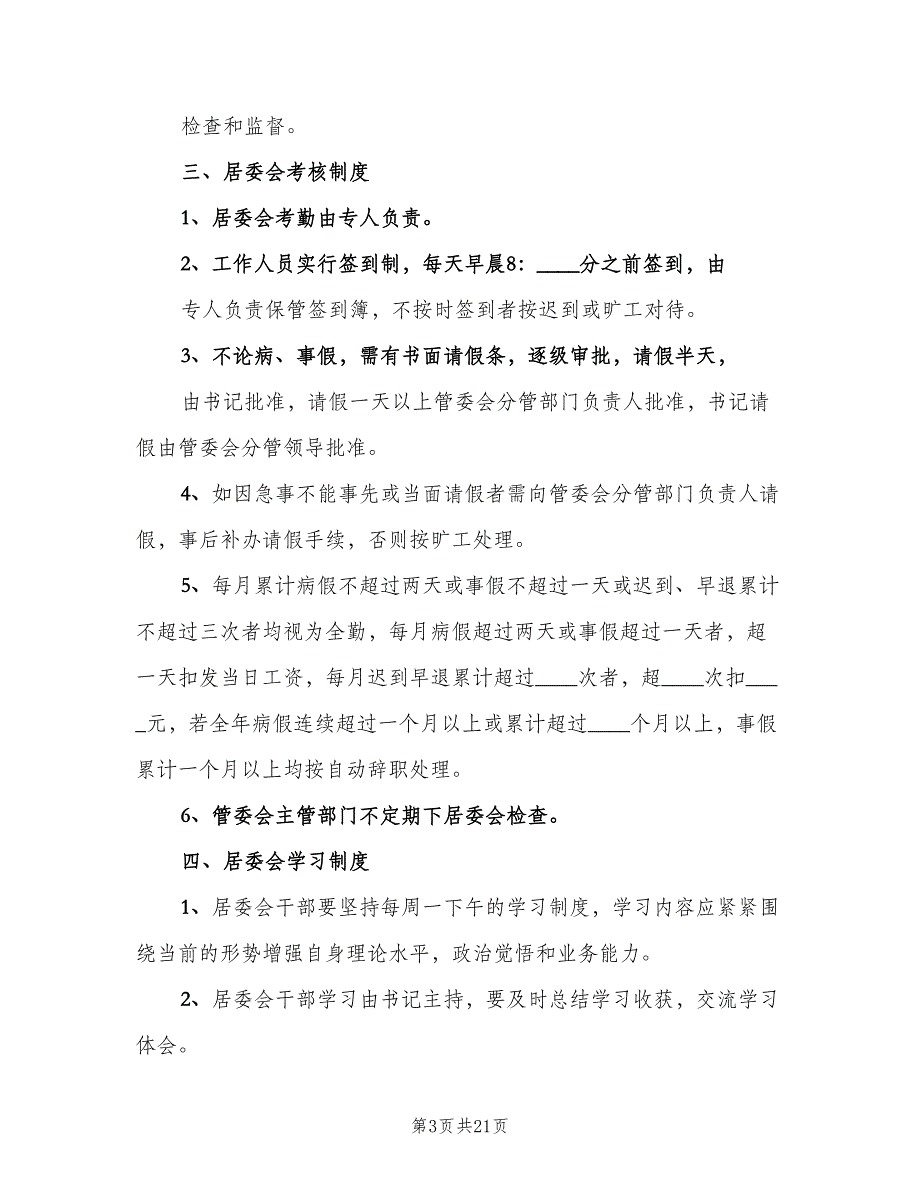 检查和监督。
三、居委会考核制度
1、居委会考勤由专人负责。
2、工作人员实行签到制，每天早晨8：____分之前签到，由
专人负责保管签到簿，不按时签到者按迟到或旷工对待。
3、不论病、事假，需有书面请假条，逐级审批，请假半天，
由书记批准，请假一天以上管委会分管部门负责人批准，书记请
假由管委会分管领导批准。
4、如因急事不能事先或当面请假者需向管委会分管部门负责人请
假，事后补办请假手续，否则按旷工处理。
5、每月累计病假不超过两天或事假不超过一天或迟到、早退累计
不超过三次者均视为全勤，每月病假超过两天或事假超过一天者，超
一天扣发当日工资，每月迟到早退累计超过____次者，超____次扣___
_元，若全年病假连续超过一个月以上或累计超过____个月以上，事假
累计一个月以上均按自动辞职处理。
6、管委会主管部门不定期下居委会检查。
四、居委会学习制度
1、居委会干部要坚持每周一下午的学习制度，学习内容应紧紧围
绕当前的形势增强自身理论水平，政治觉悟和业务能力。
2、居委会干部学习由书记主持，要及时总结学习收获，交流学习
体会。
第3页共21页